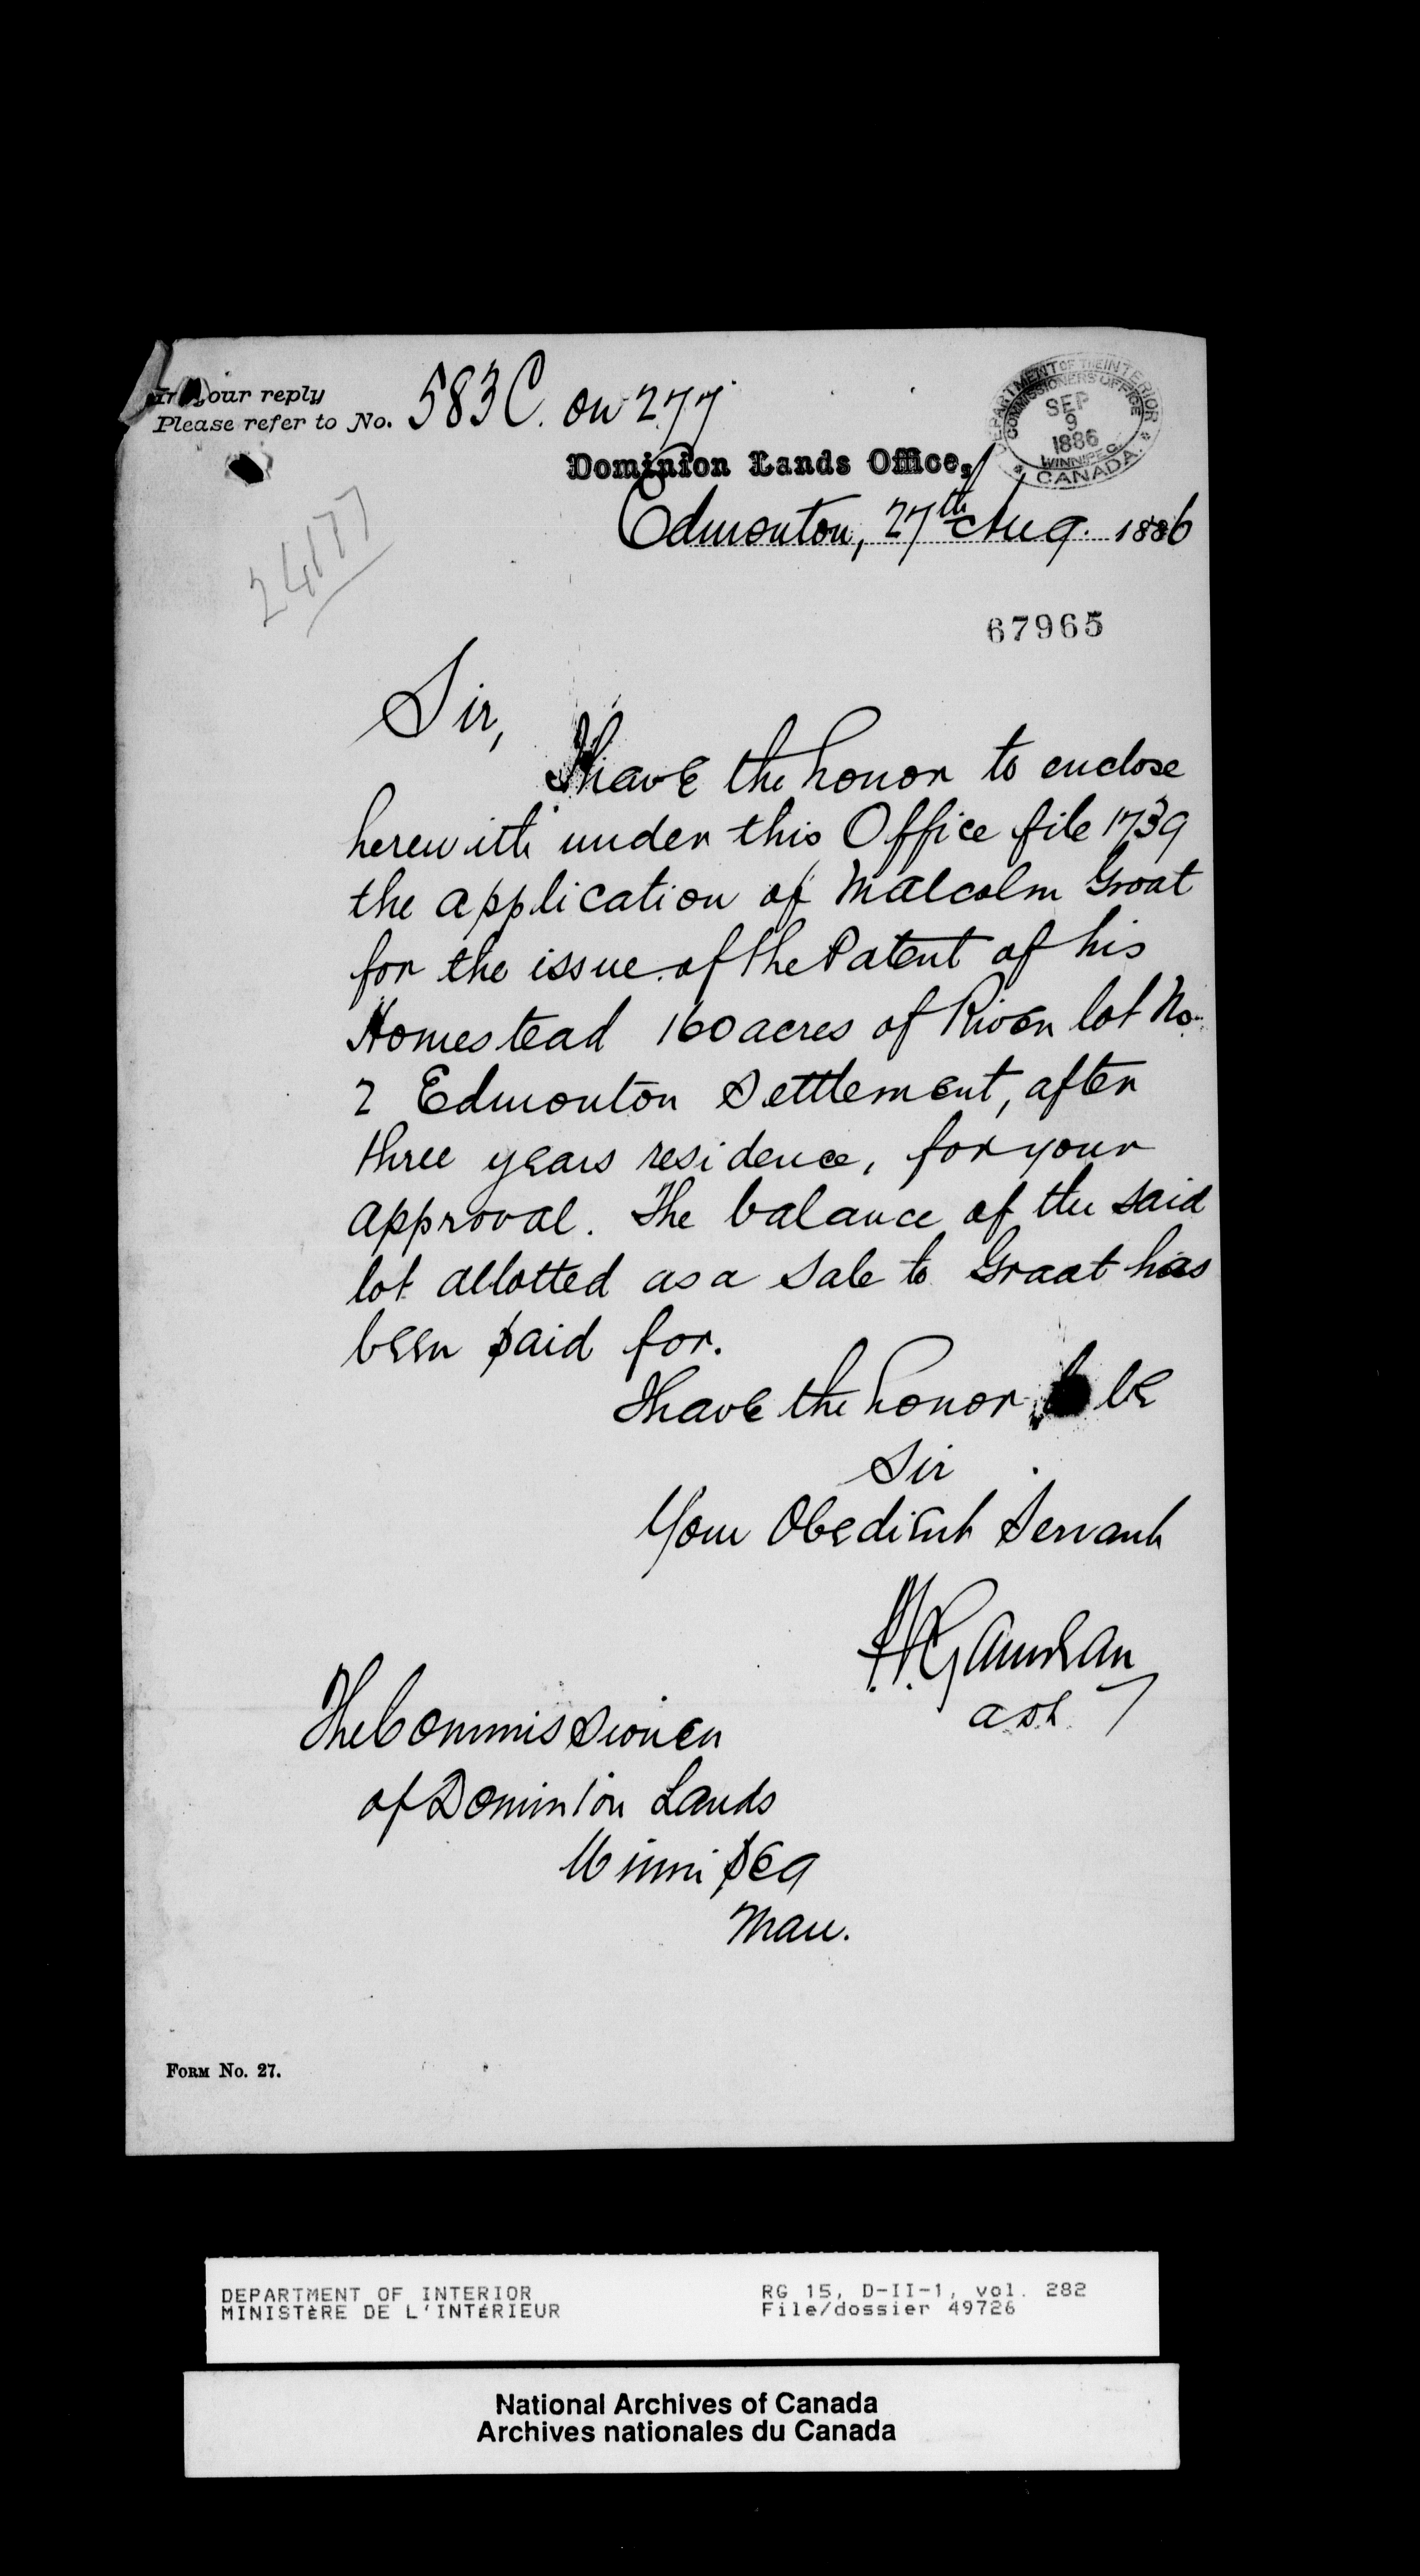 In your reply
Please refer to No. 583 C. on 277
DEPARTMENT OF THE INTERIOR
COMMISSIONERS OFFICE
SEP
9
1886
WINNIPEG
CANADA
Dominion Lands Office,
Edmonton, 27th Aug. 1886
24177
67965
Sir,
I have the honor to enclose
herewith under this Office file 1739
the application of Malcolm Groat
for the issue of the Patent of his
Homestead 160 acres of River lot No.
2 Edmonton Settlement, after
three years residence, for your
approval. The balance of the said
lot allotted as a sale to Groat has
been paid for.
I have the honor to be
Sir
Your Obedient Servant
Gauvreau
The Commissioner
of Dominion Lands
Winnipeg
Man.
FORM No. 27.
DEPARTMENT OF INTERIOR
MINISTÈRE DE L'INTÉRIEUR
RG 15, D-II-1, vol. 282
File/dossier 49726
National Archives of Canada
Archives nationales du Canada